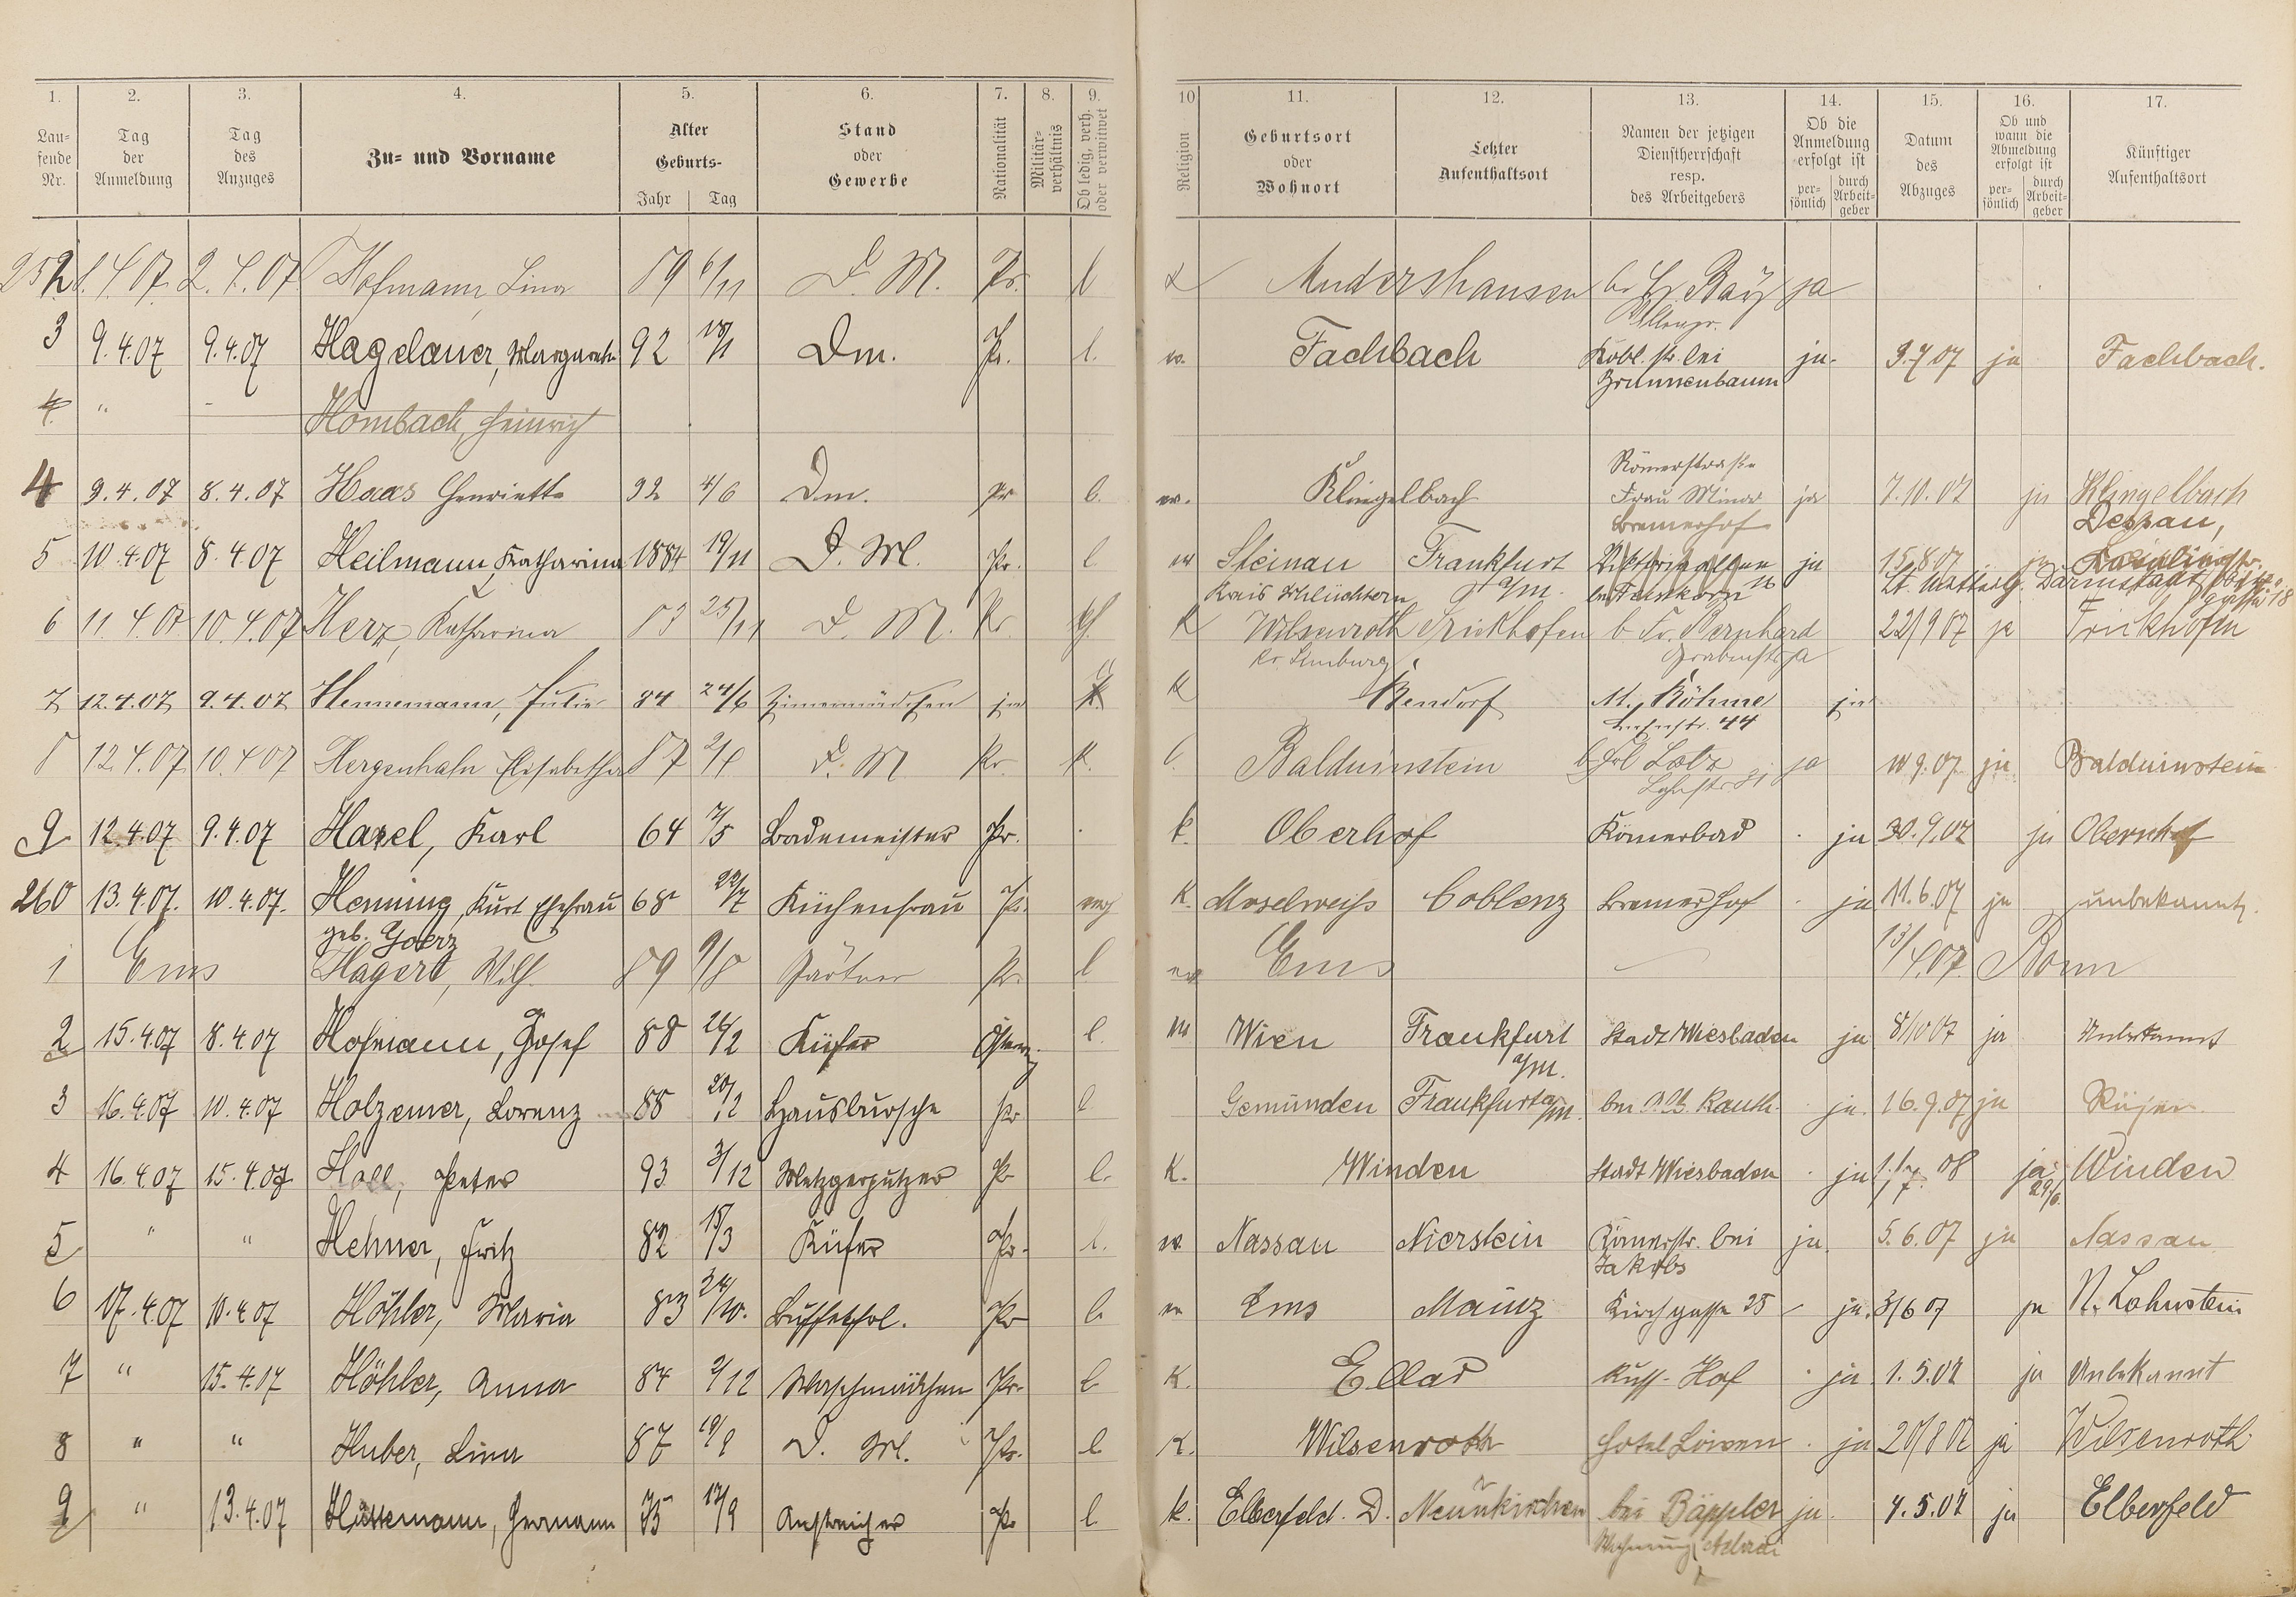 1. 2. 3. 4. 5. 6. 7. 8. 9. 10 11. 12. 13. 14. 15. 16. 17.
Lau-
fende
Nr.
Tag
der
Anmeldung
Tag
des
Anzuges
Zu- und Vorname
Alter
Geburts-
Jahr Tag
Stand
oder
Gewerbe
Nationalität
Militär-
verhältnis
Ob ledig, verh.
oder verwitwet
Religion
Geburtsort
oder
Wohnort
Letzter
Aufenthaltsort
Namen der jetzigen
Dienstherrschaft
resp.
des Arbeitgebers
Ob die
Anmeldung
erfolgt ist
per-
sönlich
durch
Arbeit-
geber
Datum
des
Abzuges
Ob und
wann die
Abmeldung
erfolgt ist
per-
sönlich
durch
Arbeit-
geber
Künftiger
Aufenthaltsort
252 2.4.07 Hofmann, Lina 89 6/11 D. M. Pr. l ja
3 9.4.07 9.4.07 Hagelauer, Margareth 92 Dm. Pr. l. Fachbach Kobl. str. bei ja. 9.7.07 ja Fachbach.
Brunnenbaum
4. " Hombach, Heinrich
Römerstraße
4 9.4.07 8.4.07 Haas Henriette 92 4/6 Dm. Pr l. ev. Klingelbach Frau Minor ja 7.10.07 ja Klingelbach
Bremerhof Dessau,
5 10.4.07 8.4.07 Heilmann, Katharina 1884 19/11 D. M. Pr. l ev Steinau Frankfurt ja 15.8.07 ja
Kreis Schlüchtern a/M. Darmstadt
6 11.4.07 10.4.07 Herz, Katharina 83 25/11 D. M. Pr. K Wilsenroth Frickhofen b Fr. Bernhard 22/9 07 ja Frickhofen
Kr Limburg Grabenstr ja
7 12.4.07 9.4.07 Hennemann, Julie 84 24/6 Zimermädchen K Bendorf M. Böhme ja
44
8 12.4.07 10.4.07 Hergenhahn Elisabetha 87 D. M Pr. Balduinstein b Frl Lotz ja 10 9.07 ja Balduinstein
Lahnstr 31
9 12.4.07 9.4.07 Hasel, Karl 64 7/5 Bademeister Pr. k. Oberhof Römerbad ja 30.9.07 ja Obernhof
260 13.4.07. 10.4.07. Henning, Kurt Ehefrau 68 22/7 Küchenfrau Pr. K. Moselweiß Coblenz Bremerhof ja 11.6.07 ja unbekannt.
geb. Goerz
1 Ems Hagert, Wilh. 89 9/8 Gärtner Pr. l ev Ems 13/4.07. Bonn
2 15.4.07 8.4.07 Hofmann, Josef 88 26/2 Küfer l. Wien Frankfurt Stadt Wiesbaden ja 8/10 07 ja Unbekannt
a/M.
3 16.4.07 10.4.07 Holzemer, Lorenz 88 20/12 Hausbursche Pr l Gemünden Frankfurt a/M. ja. 16.9.07 ja
4 16.4.07 15.4.07 Holl, Peter 93 3/12 Metzgerputzer Pr l. K. Winden Stadt Wiesbaden ja 1./7. 08 ja Winden
29/6.
5 " " Hehner, Fritz 82 15/3 Küfer Pr. l. ev. Nassau Nierstein Römerstr. bei ja. 5.6.07 ja Nassau
Jakobs
6 17.4.07 10.4.07 Höhler, Maria 83 24/10. Buffetfrl. Pr l. ev Ems Mainz Kirchgasse 25 ja. 3/6 07 ja N. Lahnstein
7 " 15.4.07 Höhler, Anna 84 2/12 Waschmädchen Pr. l. K. Ellar Russ- Hof ja 1.5.07 ja Unbekannt
8 " " Huber, Lina 87 D. M. Pr. l. K. Wilsenroth Hotel Löwen ja 20/8 07 ja Wilsenroth
9 " 13.4.07 Hüttemann, Hermann 85 17/9 Anstreicher Pr l k. Elberfeld. D. Neunkirchen bei Bäppler ja. 4.5.07 ja Elberfeld
Wohnung